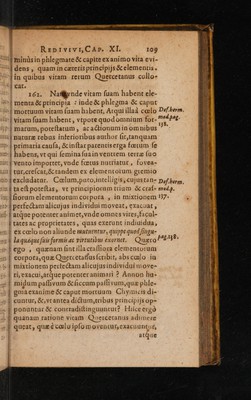 REDIVIVI, CAP. XI. 109
minùs in phlegmate & capite ex animo vita evi-
dens, quam in cæteris principijs & elementis,
in quibus vitam rerum Quercetanus collo-
cat.
161. Nam unde vitam suam habent ele-
menta & principia: inde & phlegma & caput
mortuum vitam suam habent. Atqui illa à cœlo
vitam suam habent, utpote quod omnium for-
marum, potestatum, ac actionum in omnibus
naturæ rebus inferioribus author sit, tanquam
primaria causa, & instar parentis erga fœtum se
habens, ut qui semina sua in ventrem terræ suo
vento importet, unde fœtus nutriatur, fovea-
tur, crescat, & tandem ex elementorum gremio
excludatur. Cœlum, puto, intelligis, cujus tan-
ta est potestas, ut principiorum trium & cras-
siorum elementorum corpora, in mixtionem
perfectam alicujus individui moveat, exacuat,
atque potenter animet, unde omnes vires, facul-
tates ac proprietates, quas exerunt individua,
ex cœlo non aliunde mutuentur, quippe quod singu-
la quæque suis formis ac virtutibus exornet. Quæro
ego, quænam sint illa crassiora elementorum
corpora, quæ Quercetanus scribit, abs cœlo in
mixtionem perfectam alicujus individui move-
ri, exacui, atque potenter animari? Annon hu-
midum passivum & siccum passivum, quæ phle-
gma exanime & caput mortuum Chymicis di-
cuntur, &, ut antea dictum, tribus principijs op-
ponuntur & contradistinguuntur? Hisce ergò
quanam ratione vitam Quercetanus adimere
queat, quæ è cœlo ipso moventur, exacuuntur,
atque
Def. herm.
med. pag.
138.
Def. herm.
med. p.
137.
pag. 138.